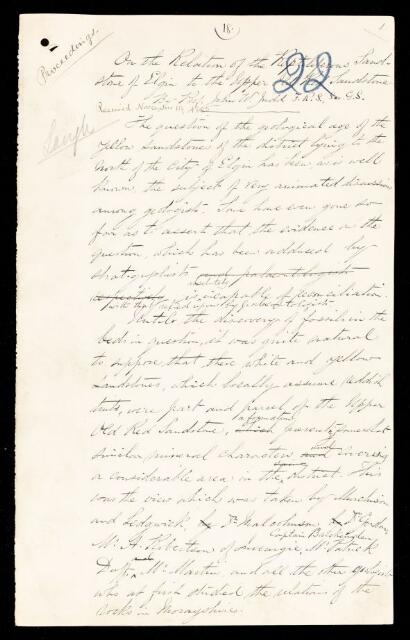 18.
1
Proceedings.
On the Relation of the Reptiliferous Sand-
stone of Elgin to the Upper Old Red Sandstone
22
By Prof. John W. Judd F.R.S. Sec G.S.
Received November
The question of the geological age of the
Yellow Sandstones of the district lying to the
North of the City of Elgin has been, as is well
known, the subject of very animated discussion
among geologists. Some have even gone so
far as to assert that the evidence on the
question, which has been adduced by
stratigraphists and palaeontologists
absolutely
is incapable of reconciliation.
with that relied upon by palaeontologists
Until the discovery of fossils in the
beds in question, it was quite natural
to suppose that these white and yellow
sandstones, which locally assume reddish
tints, were part and parcel of the Upper
a formation
Old Red Sandstone, which presents somewhat
similar mineral characters and covering
a considerable area in the district. This
was the view which was taken by Murchison
and Sedgwick, by Dr. Malcolmson, by Dr. Gordon
Captain Brickenden
Mr. A. Robertson of Inverugie, Mr. Patrick
Duff, Mr. Martin, and all the other
who at first studied the relations of the
rocks in Morayshire.